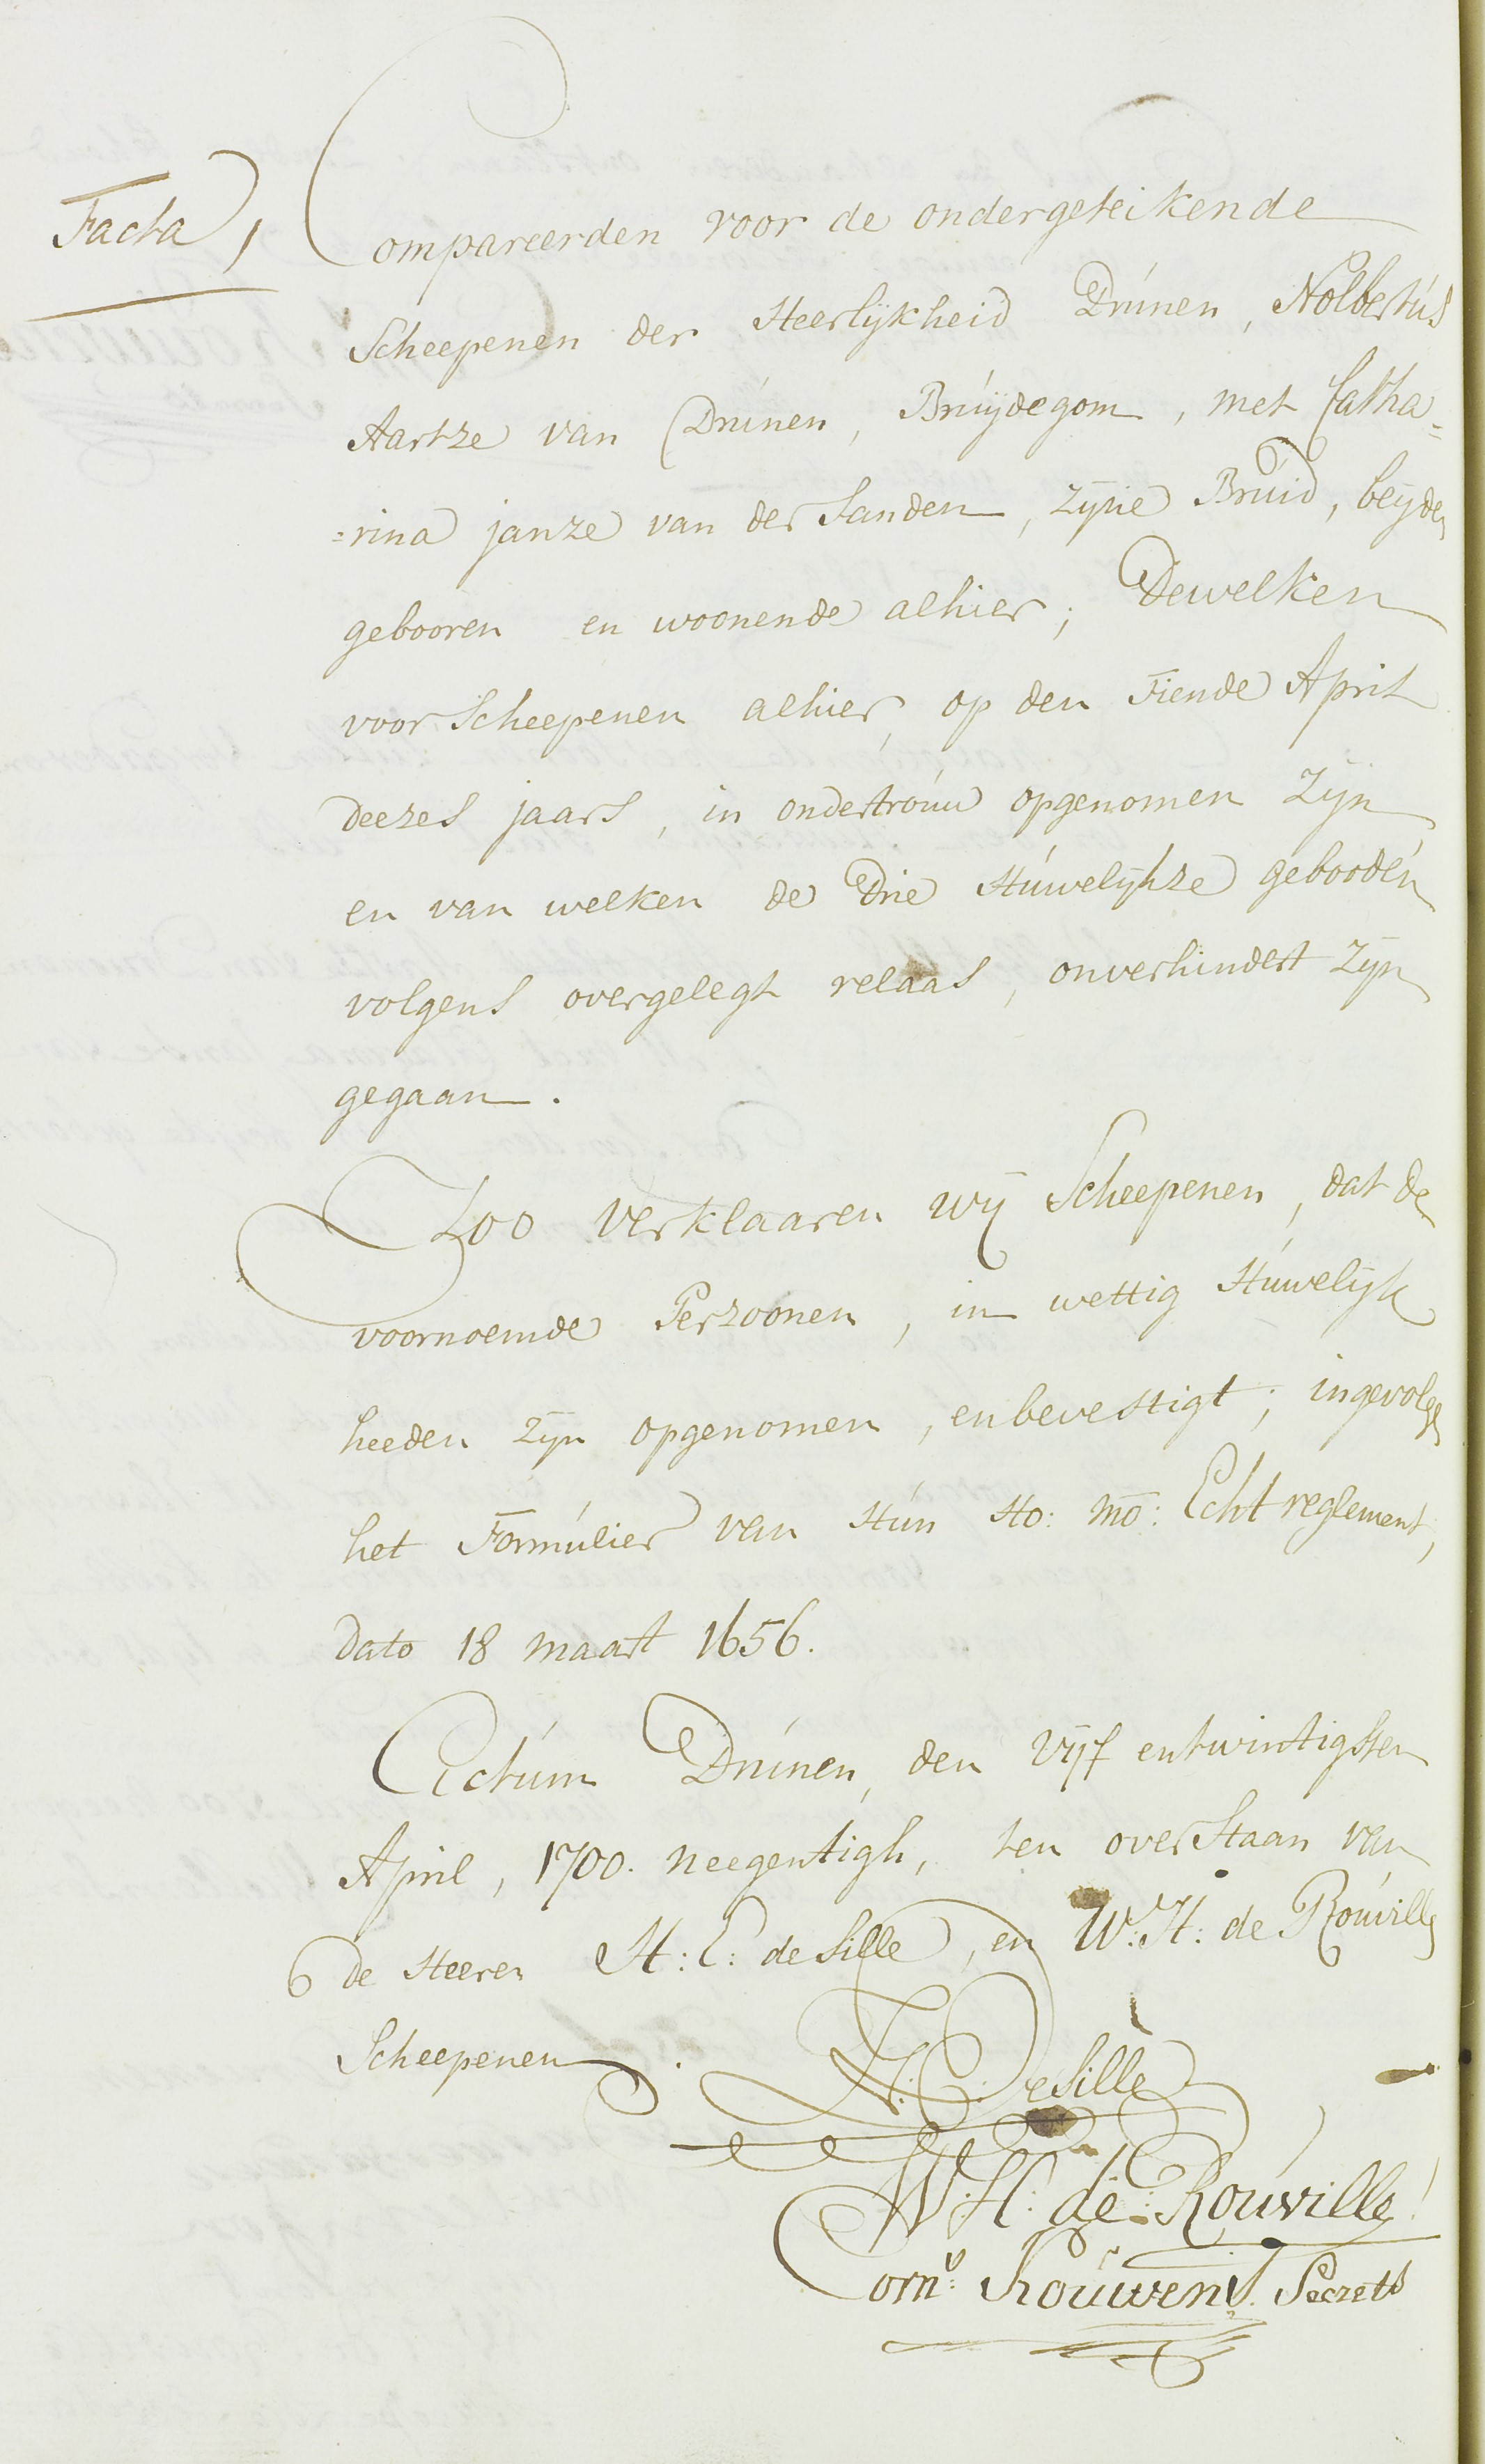 Facta,
Compareerden voor de ondergeteikende
Scheepenen der Heerlijkheid Drúnen, Nolbertús
Aartze van Drúnen, Brúijdegom, met Catha=
=rina janze van der Sanden, zijne Brúid, beijde
gebooren en woonende alhier; Dewelken
voor Scheepenen alhier, op den Tiende April
deezes jaars, in ondertroúw opgenomen zijn
en van welken de Drie Húwelijkze gebooden
volgens overgelegt relaas, onverhindert zijn
gegaan.
Zoo verklaaren wij Scheepenen, dat de
voornoemde Perzoonen, in wettig Húwelijk
heeden zijn opgenomen, en bevestigt; ingevolge
het Formúlier van Hún Ho: Mo: Echt reglement,
dato 18 maart 1656.
Actúm Drúnen, den vijf entwintigsten
April, 1700. neegentigh, ten overstaan van
de Heeren H: C: de Sille, en W: H: de Roúville
Scheepenen.
H: C: De Sille
W: H: de: Roúville
Corns: Roúwens. Secrets